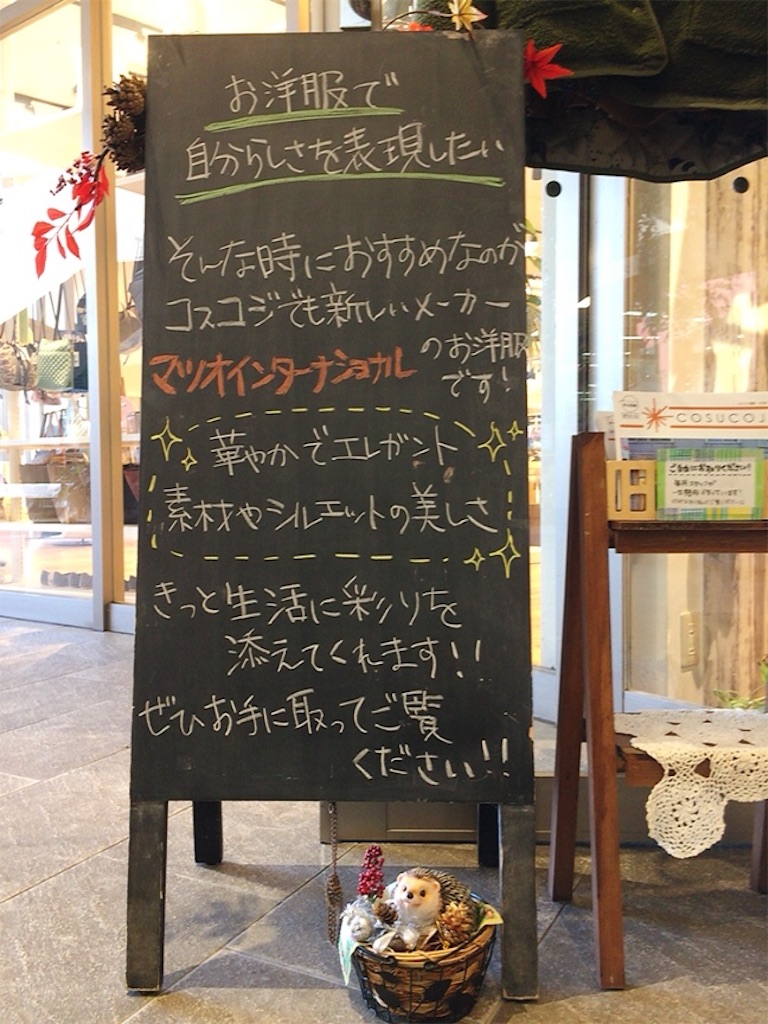 お洋服で
自分らしさを表現したい
そんな時におすすめなのが
コスコジでも新しいメーカー
マツオインターナショナル
のお洋服
です!
華やかでエレガント
素材やシルエットの美しさ
きっと生活に彩りを
添えてくれます!!
ぜひお手に取ってご覧
ください!!
COSUCOJ
ご自由にお取りください!